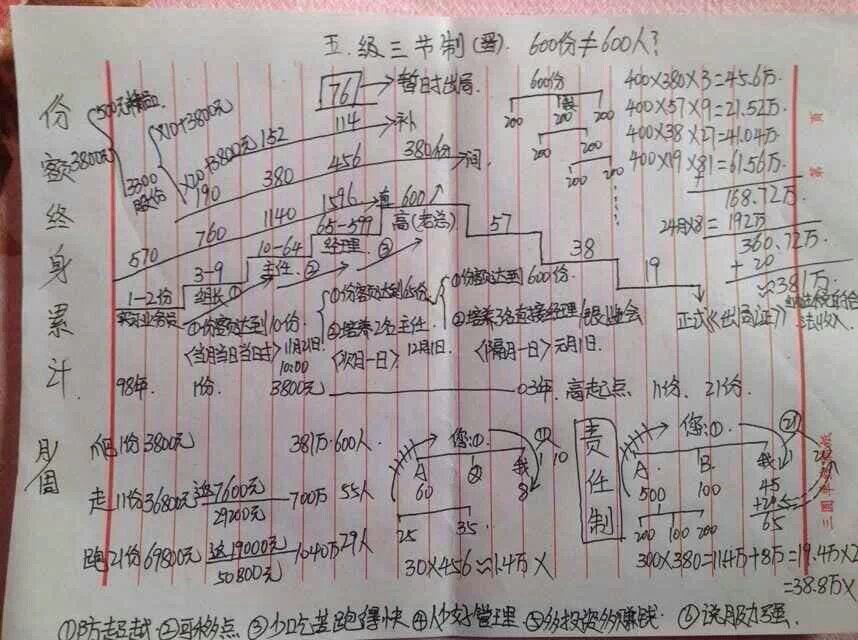 五级三节制(晋). 600份≠600人?
份额终身累计.
3800元
3300股份
×10+3800元
×20+3800元
76 → 暂时出局.
152 114 → 补
190 380 456 380份 → 间
570 760 1140 1596 → 直
600份
200 200 200
200 200
200 200
400×380×3=45.6万
400×57×9=21.52万
400×38×27=41.04万
400×19×81=61.56万
168.72万
24月×8=192万
360.72万
+20
≈381万
1-2份
实习业务员
3-9
组长①
10-64
主任②
65-599
经理③
600
高(老总)
57
38
19
正式《出局证》
①份额达到10份
<当月当日当时>
11月21日
10:00
①份额达到65份
②培养2名主任
<次月一日>
12月1日
①份额达到600份
②培养3名直接经理
<隔月一日>
元月1日
98年. 1份. 3800元 03年. 高起点. 11份. 21份.
1份3800元 381万·600人
走11份36800元 700万 55人
7600元
29200元
跑21份69800元 1040万 29人
19000元
50800元
您:①
A ② 我
60 8
① 10
25 35
30×456≈1.4万×
责任制
您:①
A B 我
500 100 45
65
200 100 200
㉑
300×380=11.4万+8万=19.4万×2
=38.8万×
①防超越 ③少吃苦跑得快 ④人少好管理 ⑤多投资多赚钱 ⑥说服力强